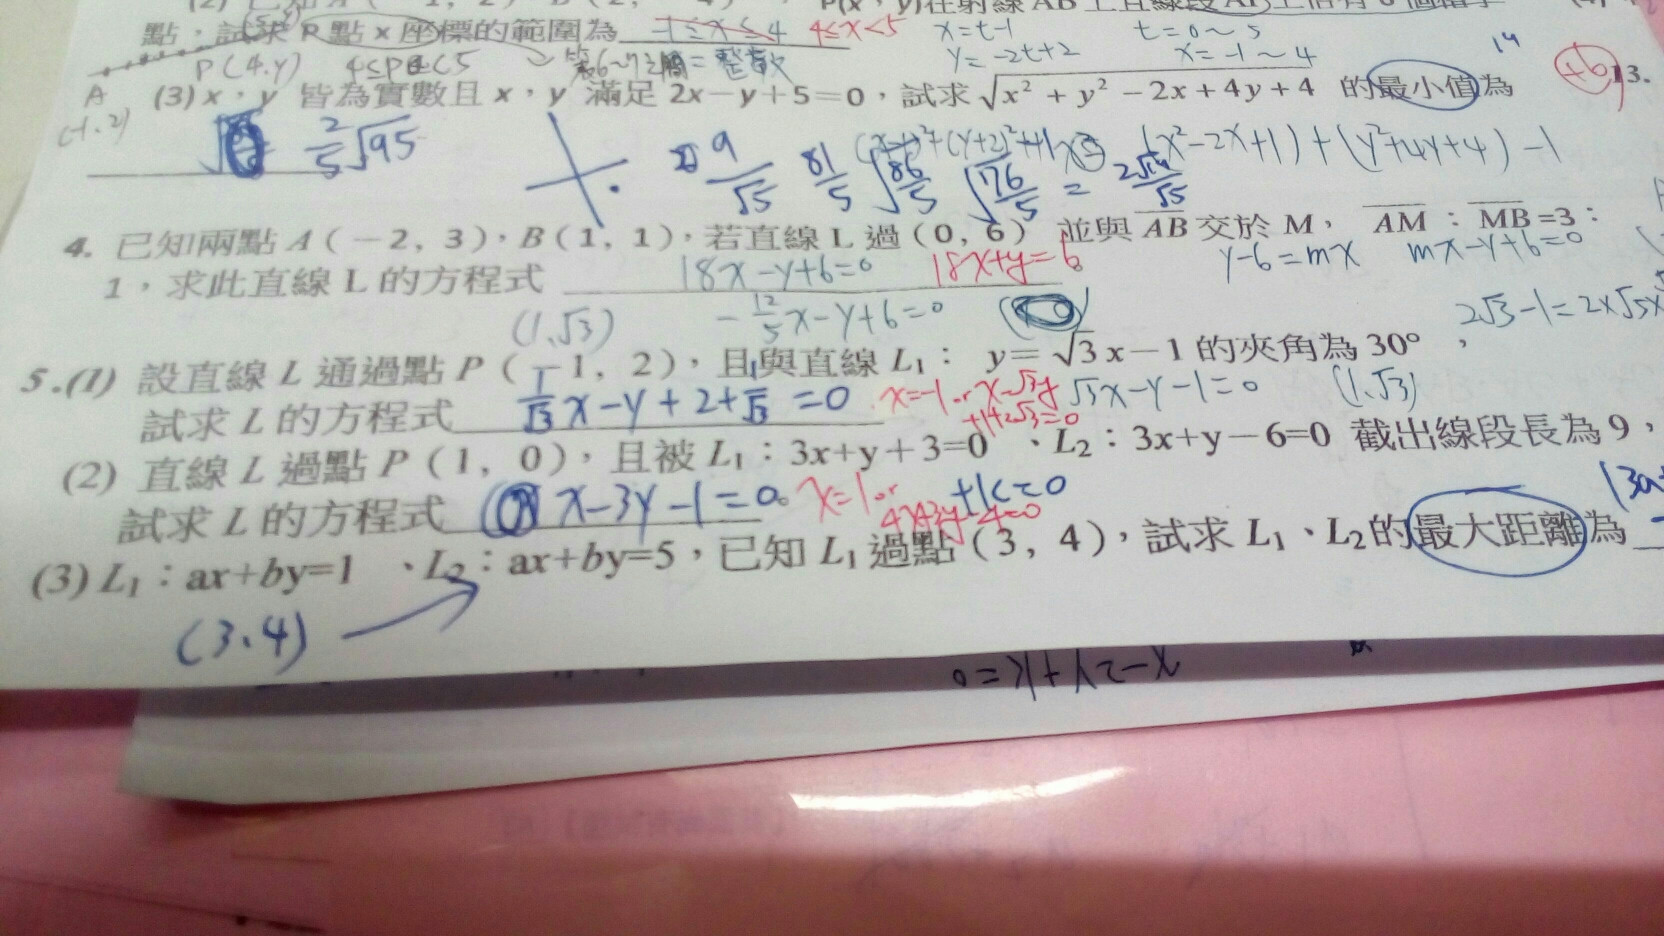 點，試求 P 點 x 座標的範圍為 -1≤x≤4 4≤x<5 x=t-1 t=0~5
P(4,y) 4≤P<5 第6~7之間=整數 y=-2t+2 x=-1~4
A
(-1,2)
(3) x，y 皆為實數且 x，y 滿足 2x－y＋5＝0，試求 √x²＋y²－2x＋4y＋4 的最小值為
+6 13.
2/5√95 9/√5 81/5 √86/5 √76/5 = 2√19/√5 (x²-2x+1)+(y²+4y+4)-1
4. 已知兩點 A（－2, 3），B（1, 1），若直線 L 過（0, 6）並與 AB 交於 M， AM：MB=3：
1，求此直線 L 的方程式 18x-y+6=0 18x+y=6 y-6=mx mx-y+6=0
(1,√3) -12/5x-y+6=0
5.(1) 設直線 L 通過點 P（－1, 2），且與直線 L₁： y＝√3x－1 的夾角為 30°，
試求 L 的方程式 1/√3x-y+2+1/√3=0 x=-1 or x-√3y+1+2√3=0 √3x-y-1=0 (1,√3)
(2) 直線 L 過點 P（1, 0），且被 L₁：3x+y＋3=0、L₂：3x+y－6=0 截出線段長為 9，
試求 L 的方程式 x-3y-1=0 x=1 or 4x+3y-4=0 +k=0
(3) L₁：ax+by=1、L₂：ax+by=5，已知 L₁ 過點（3, 4），試求 L₁、L₂的最大距離為
(3,4)
x-2y+k=0